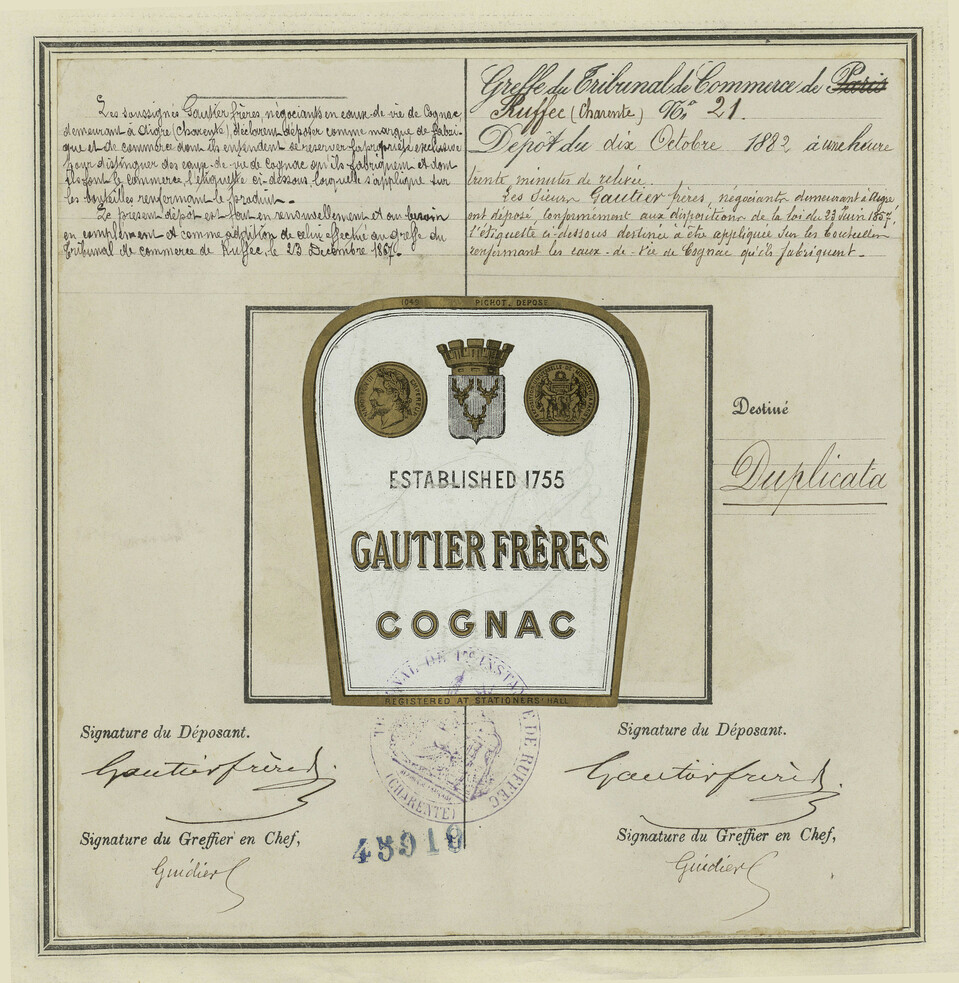 Les soussignés Gautier frères, négociants en eaux-de-vie de Cognac,
demeurant à Aigre (Charente), déclarent déposer comme marque de fabri-
que et de commerce dont ils entendent se réserver la propriété exclusive
pour distinguer des eaux-de-vie de Cognac qu'ils fabriquent et dont
ils font le commerce, l'étiquette ci-dessous, laquelle s'applique sur
les bouteilles renfermant le produit.-
Le présent dépôt est fait en renouvellement et au besoin
en complément et comme addition de celui effectué au greffe du
Tribunal de commerce de Ruffec, le 23 Décembre 1867.
Greffe du Tribunal de Commerce de Paris
Ruffec (Charente) No 21.
Dépôt du dix Octobre 1882 à une heure
trente minutes de relevée
Les Sieurs Gautier frères, négociants demeurant à Aigre
ont déposé, conformément aux dispositions de la loi du 23 Juin 1857,
l'étiquette ci-dessous destinée à être appliquée sur les bouteilles
renfermant les eaux-de-vie de Cognac qu'ils fabriquent.-
1045 PICHOT, DEPOSE
ESTABLISHED 1755
GAUTIER FRÈRES
COGNAC
REGISTERED AT STATIONERS' HALL
Destiné
Duplicata
DE 1re INSTA E DE RUFFEC
(CHARENTE)
Signature du Déposant.
Gautier frères
Signature du Greffier en Chef,
Guidier
45918
Signature du Déposant.
Gautier frères
Signature du Greffier en Chef,
Guidier